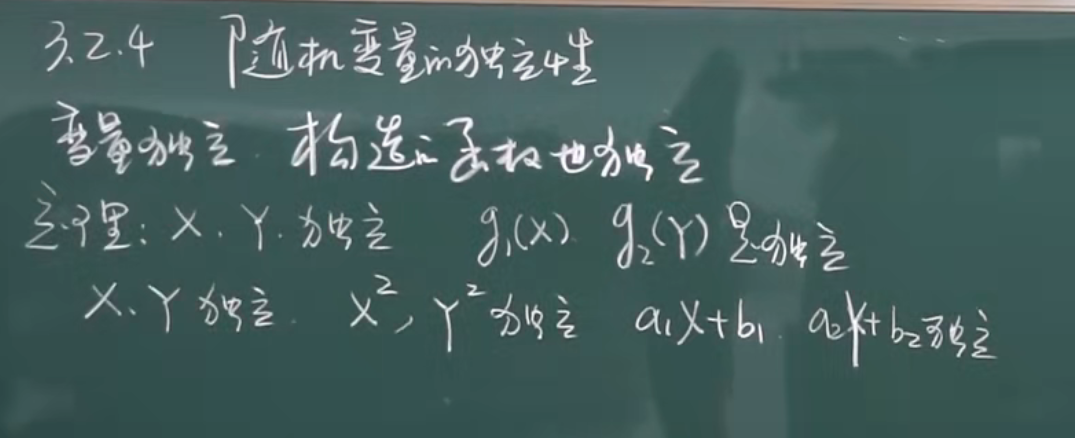 3.2.4 随机变量的独立性
变量独立. 构造的函数也独立
定理: X. Y. 独立 g₁(X). g₂(Y) 是独立
X. Y 独立. X², Y² 独立 a₁X+b₁. a₂Y+b₂ 独立